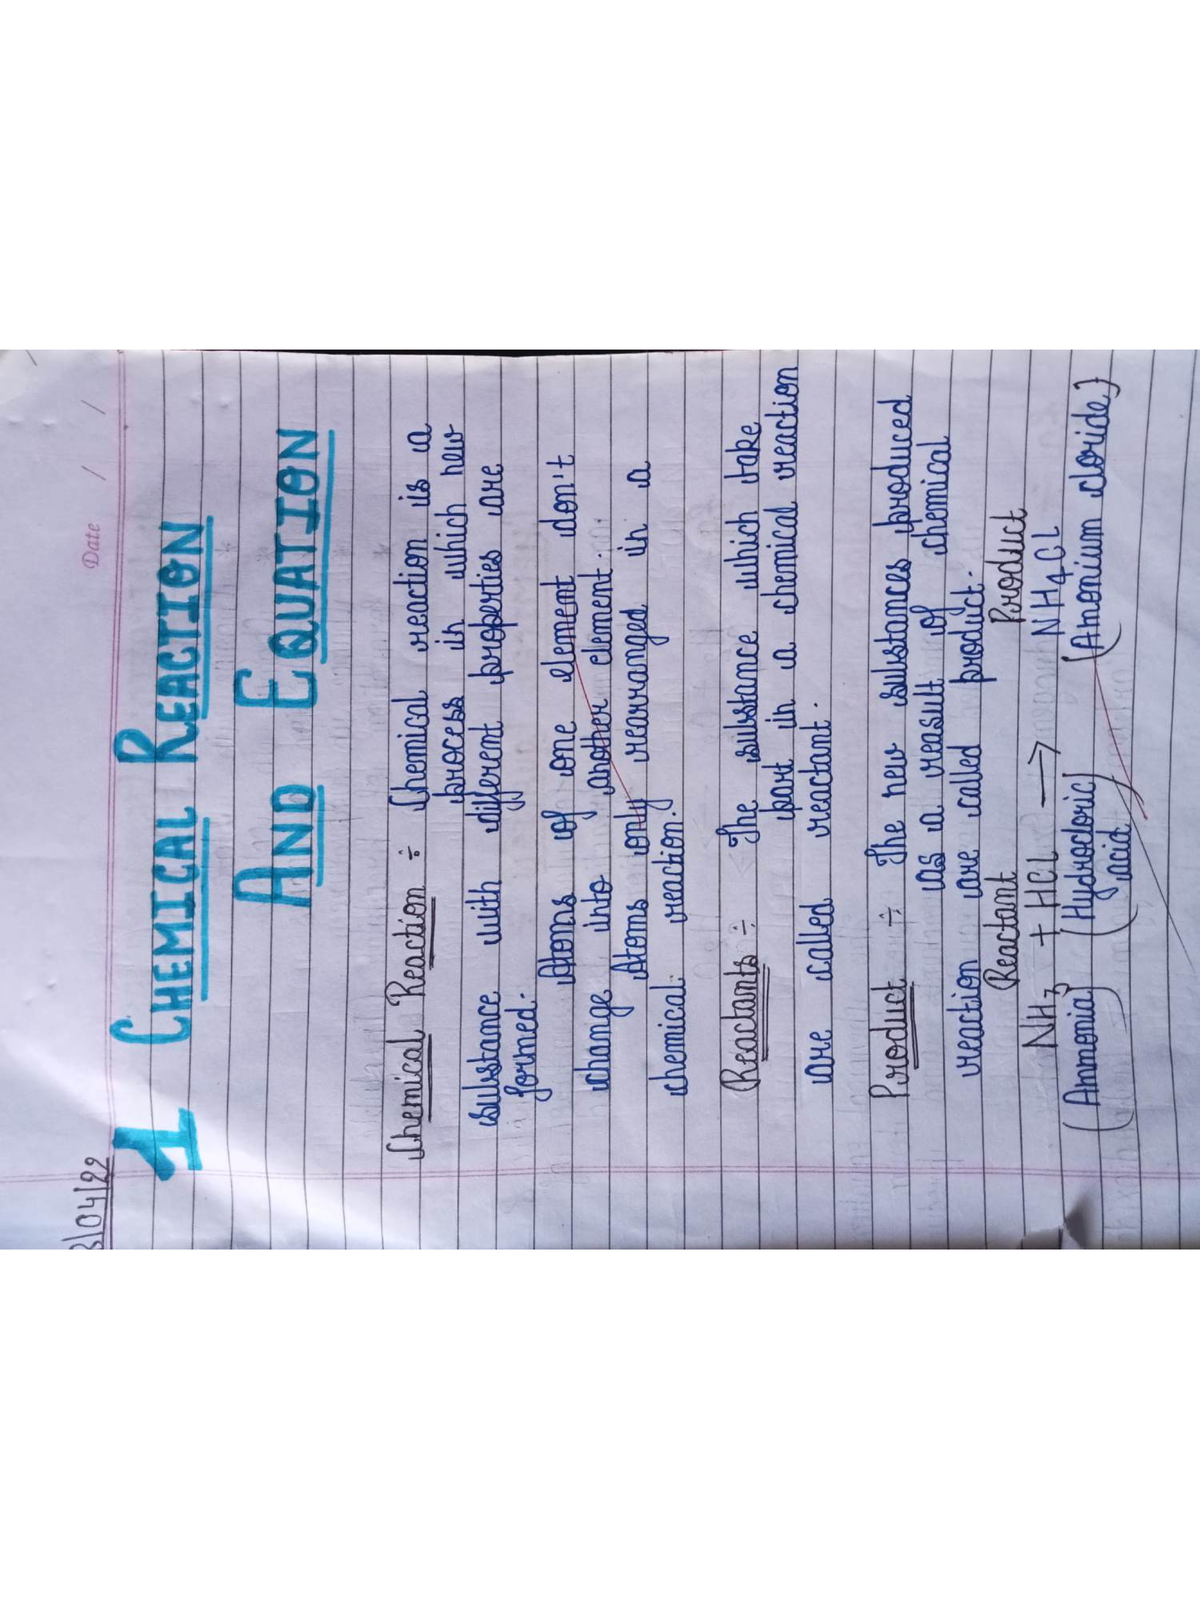 Date / /
3/04/22
1 CHEMICAL REACTION
AND EQUATION
Chemical Reaction ÷ Chemical reaction is a
process in which new
substance with different properties are
formed.
Atoms of one element don't
change into another element.
Atoms only rearranged in a
chemical reaction.
Reactants ÷ The substance which take
part in a chemical reaction
are called reactant.
Product ÷ The new substances produced
as a reasult of chemical
reaction are called product.
Reactant Product
NH3 + HCl → NH4CL
(Ammonia) (Hydrocloric (Amonium cloride)
acid)